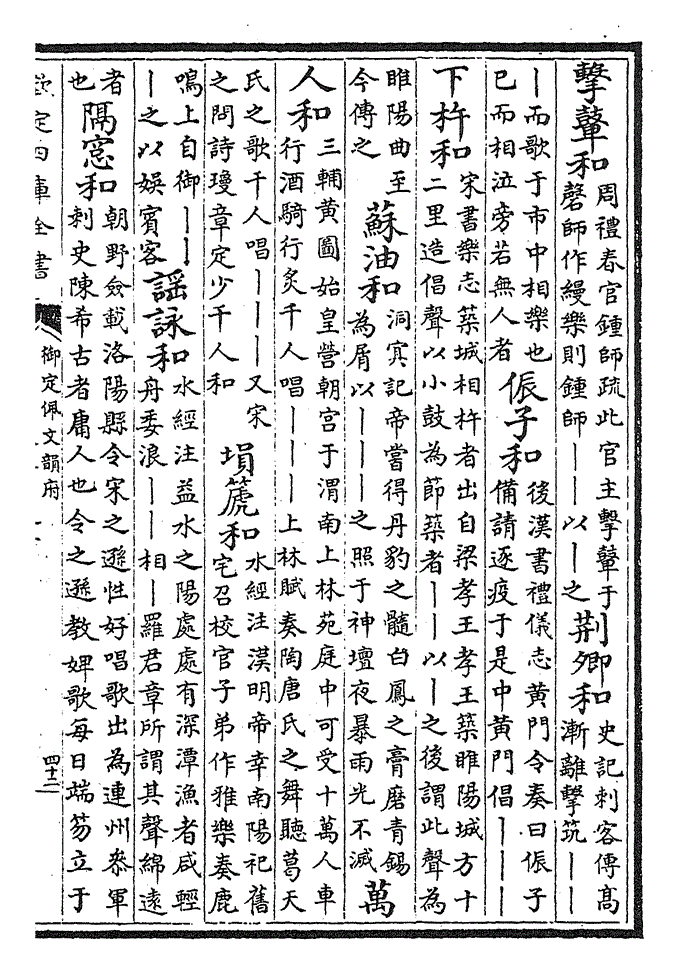 擊鼙和周禮春官鍾師疏此官主擊鼙于磬師作縵樂則鍾師——以—之荆卿和史記刺客傳高漸離擊筑——
—而歌于市中相樂也已而相泣旁若無人者侲子和後漢書禮儀志黃門令奏曰侲子備請逐疫于是中黃門倡———
下杵和宋書樂志築城相杵者出自梁孝王孝王築睢陽城方十二里造倡聲以小鼓為節築者——以—之後謂此聲為
睢陽曲至今傳之蘇油和洞冥記帝嘗得丹豹之髓白鳳之膏磨青錫為屑以———之照于神壇夜暴雨光不滅萬
人和三輔黃圖始皇營朝宮于渭南上林苑庭中可受十萬人車行酒騎行炙千人唱———上林賦奏陶唐氏之舞聽葛天
氏之歌千人唱———又宋之問詩瓊章定少千人和塤篪和水經注漢明帝幸南陽祀舊宅召校官子弟作雅樂奏鹿
鳴上自御———之以娛賓客謡詠和水經注益水之陽處處有深潭漁者咸輕舟委浪——相—羅君章所謂其聲綿遠
者也隔窓和朝野僉載洛陽縣令宋之遜性好唱歌出為連州叅軍刺史陳希古者庸人也令之遜教婢歌每日端笏立于
欽定四庫全書
御定佩文韻府
四十二